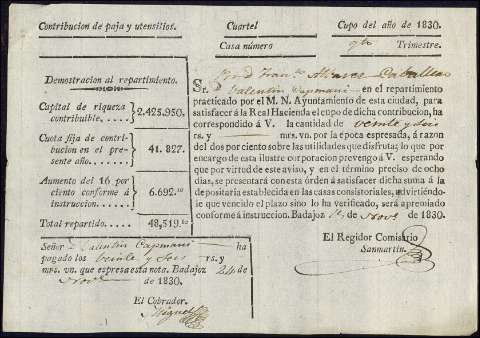 Contribucion de paja y utensilios.
Cuartel
Cupo del año de 1830.
Casa número
Trimestre.
Demostracion al repartimiento.
Capital de riqueza
contribuible. . . . . . 2.425.950.
Cuota fija de contri-
bucion en el pre-
sente año. . . . . . . 41.827.
Aumento del 16 por
ciento conforme á
instruccion. . . . . . 6.692.
Total repartido. . . . . 48,519.
Señor Valentin Capmani ha
pagado los veinte y seis rs. y
mrs. vn. que espresa esta nota. Badajoz 24 de
Novre de 1830.
El Cobrador.
Miguel
Caballero
Sr. D. Valentin Capmani en el repartimiento
practicado por el M. N. Ayuntamiento de esta ciudad, para
satisfacer á la Real Hacienda el cupo de dicha contribucion, ha
correspondido á V. la cantidad de veinte y seis
rs. y mrs. vn. por la época espresada, á razon
del dos por ciento sobre las utilidades que disfruta; lo que por
encargo de esta ilustre corporacion prevengo á V. esperando
que por virtud de este aviso, y en el término preciso de ocho
dias, se presentará con esta órden á satisfacer dicha suma á la
depositaría establecida en las casas consistoriales, advirtiéndo-
le que vencido el plazo sino lo ha verificado, será apremiado
conforme á instruccion. Badajoz de Novre de 1830.
El Regidor Comisario
Sanmartin.